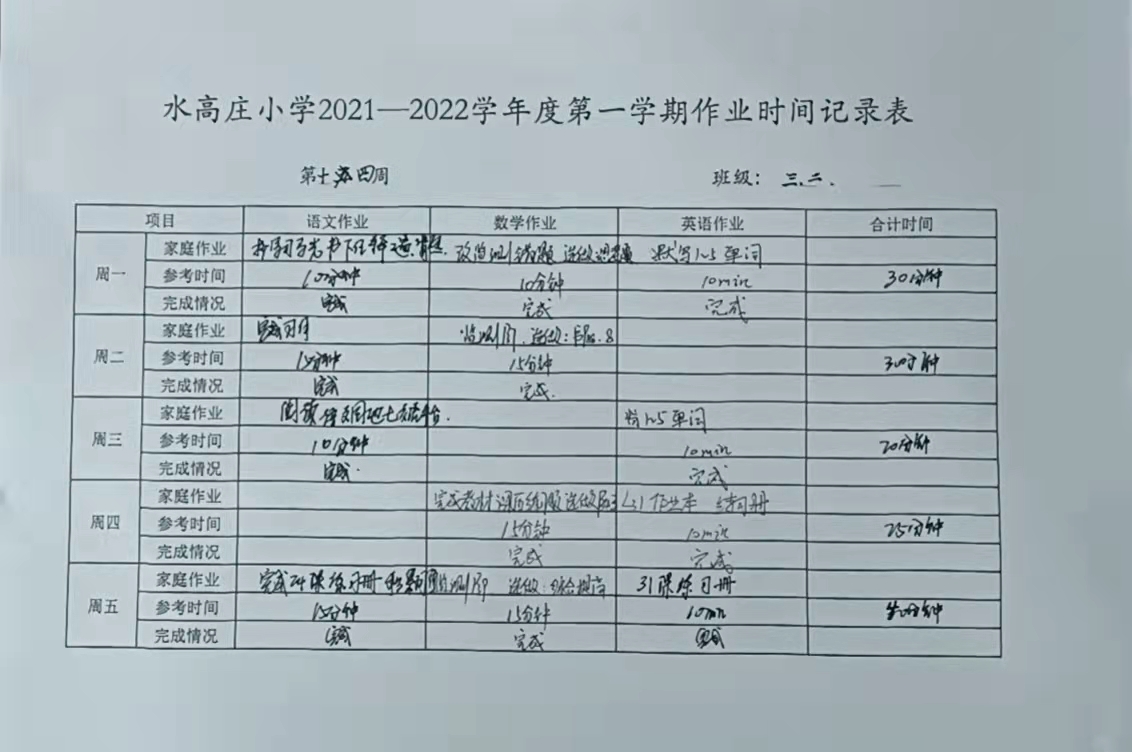 水高庄小学2021—2022学年度第一学期作业时间记录表
第十四周 班级：三.二.
项目 语文作业 数学作业 英语作业 合计时间
周一 家庭作业 改监测错题 选做思 默写 单词
参考时间 10分钟 10分钟 10min 30分钟
完成情况 完成 完成 完成
周二 家庭作业 完成习 选做：
参考时间 15分钟 15分钟 30分钟
完成情况 完成 完成.
周三 家庭作业 阅读 单词
参考时间 10分钟 10min 20分钟
完成情况 完成. 完成
周四 家庭作业 完成教材 选做 作业本 练习册
参考时间 15分钟 10min 25分钟
完成情况 完成 完成
周五 家庭作业 完成24课练习册 选做：综合 31课练习册
参考时间 15分钟 15分钟 10min 分钟
完成情况 完成 完成 完成